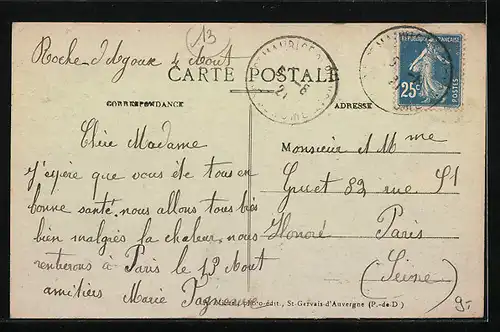 13
Roche d'Agoux 4 Aout
CARTE POSTALE
CORRESPONDANCE
ADRESSE
REPUBLIQUE FRANÇAISE
25c
Chère Madame
j'espère que vous éte tous en
bonne santé. nous allons tous biés
bien malgrès la chaleur. nous
rentierons à Paris le 13 Aout
amitiers Marie
Monsieur et Mme
Gruet 82 rue St
Honoré Paris
(Seine)
édit., St-Gervais d'Auvergne (P.-de-D.)
9-